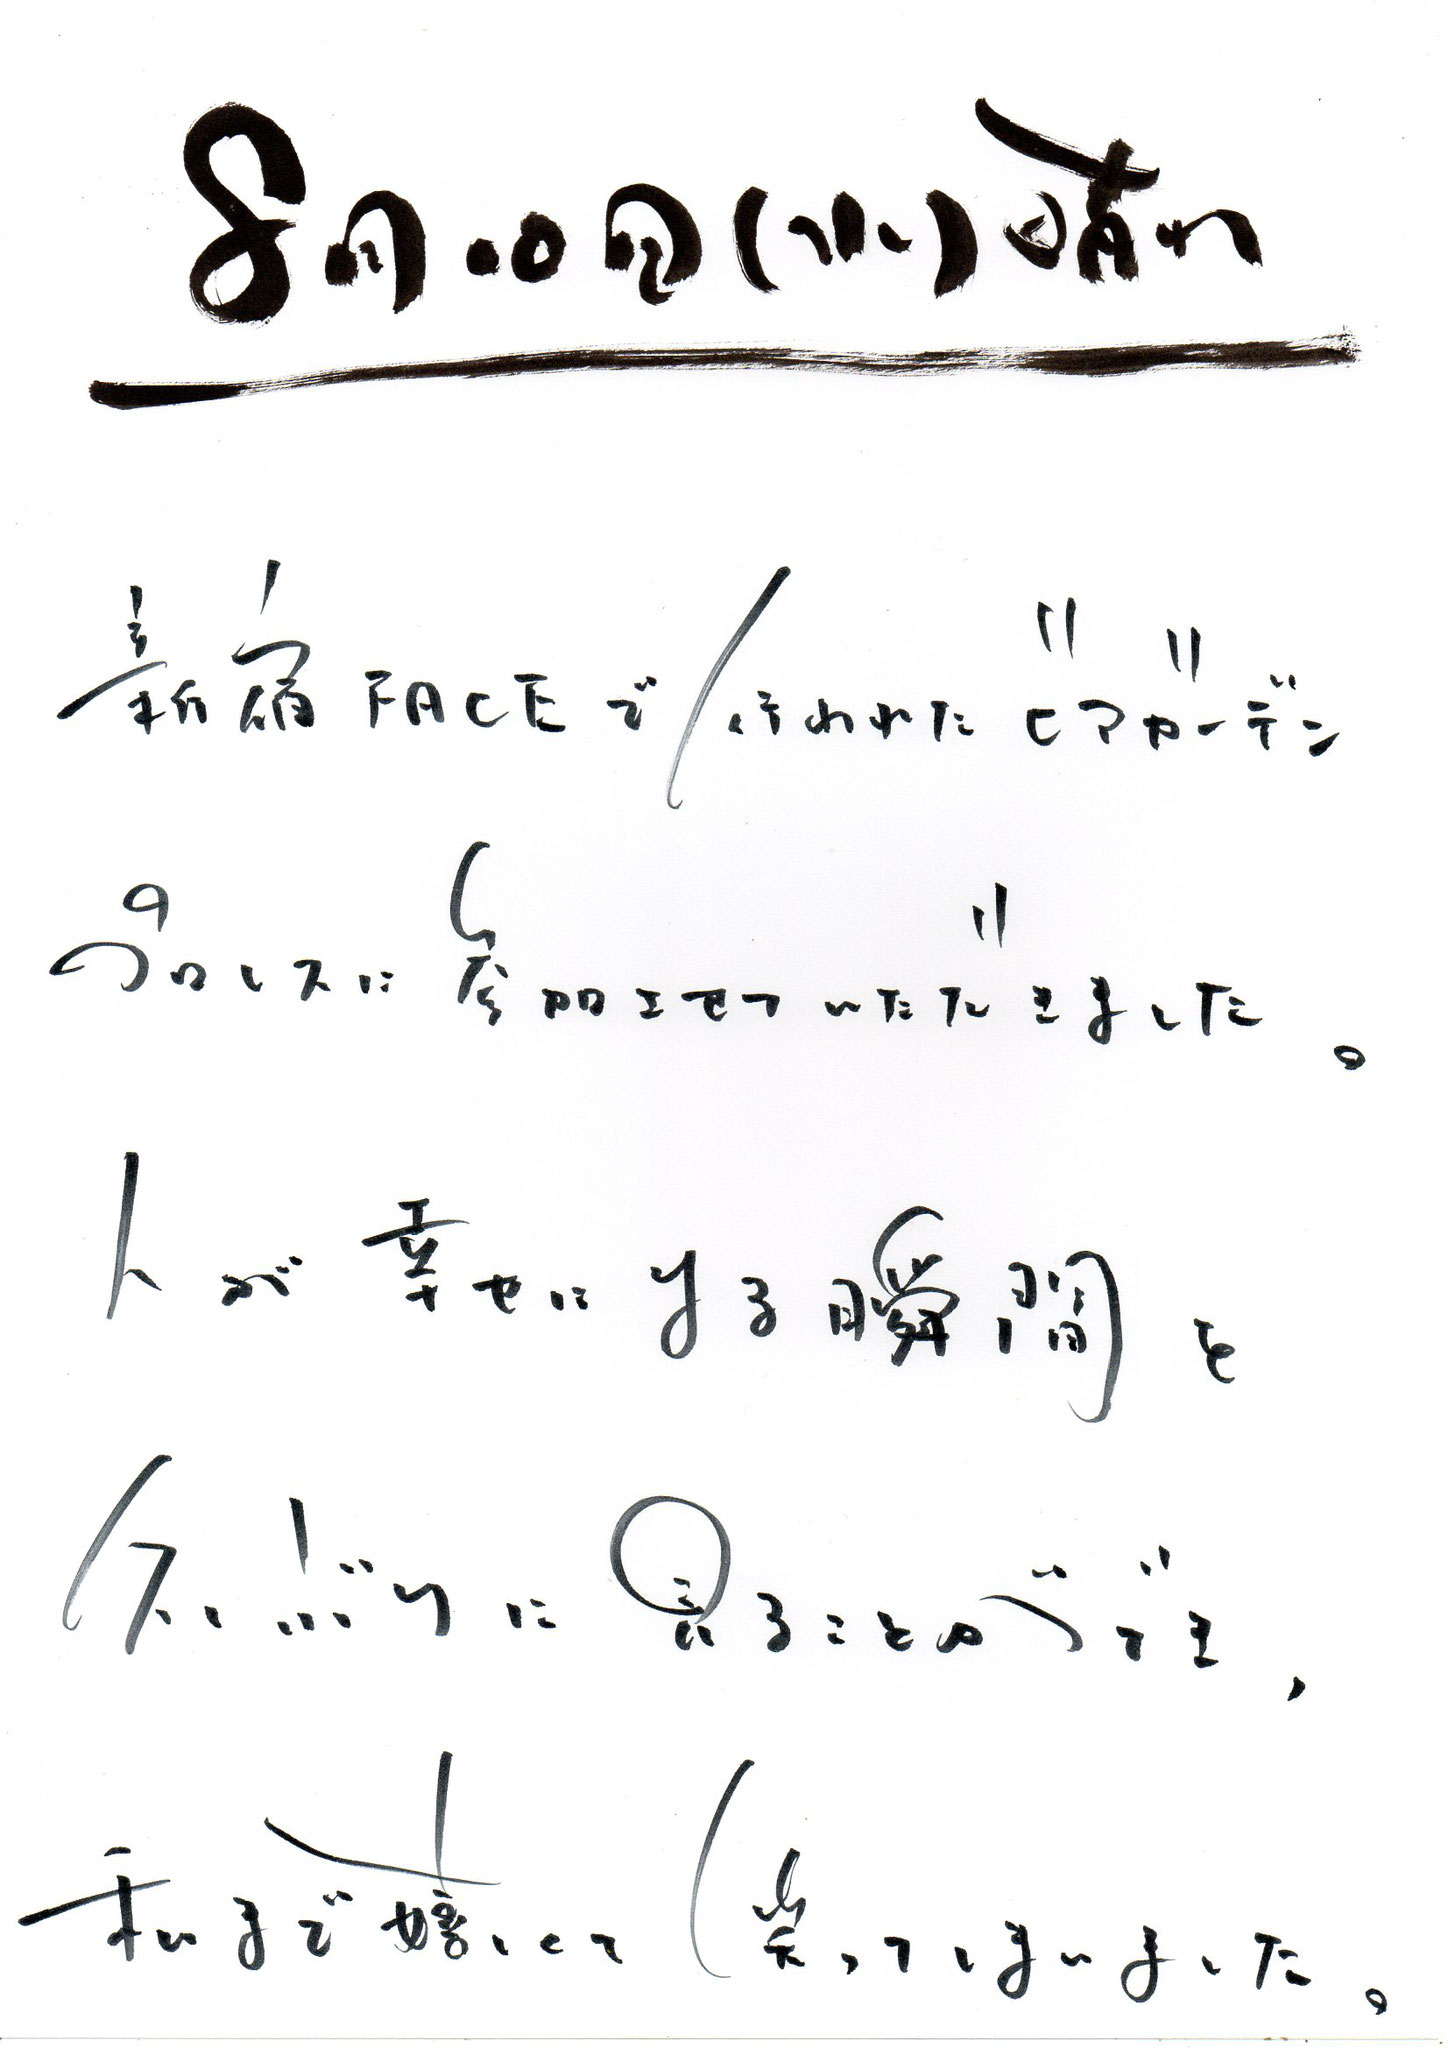 8月10日(水)晴れ
新宿FACEで行われたビアガーデン
プロレスに参加させていただきました。
人が幸せになる瞬間を
久しぶりに見ることができ、
私まで嬉しくて笑ってしまいました。